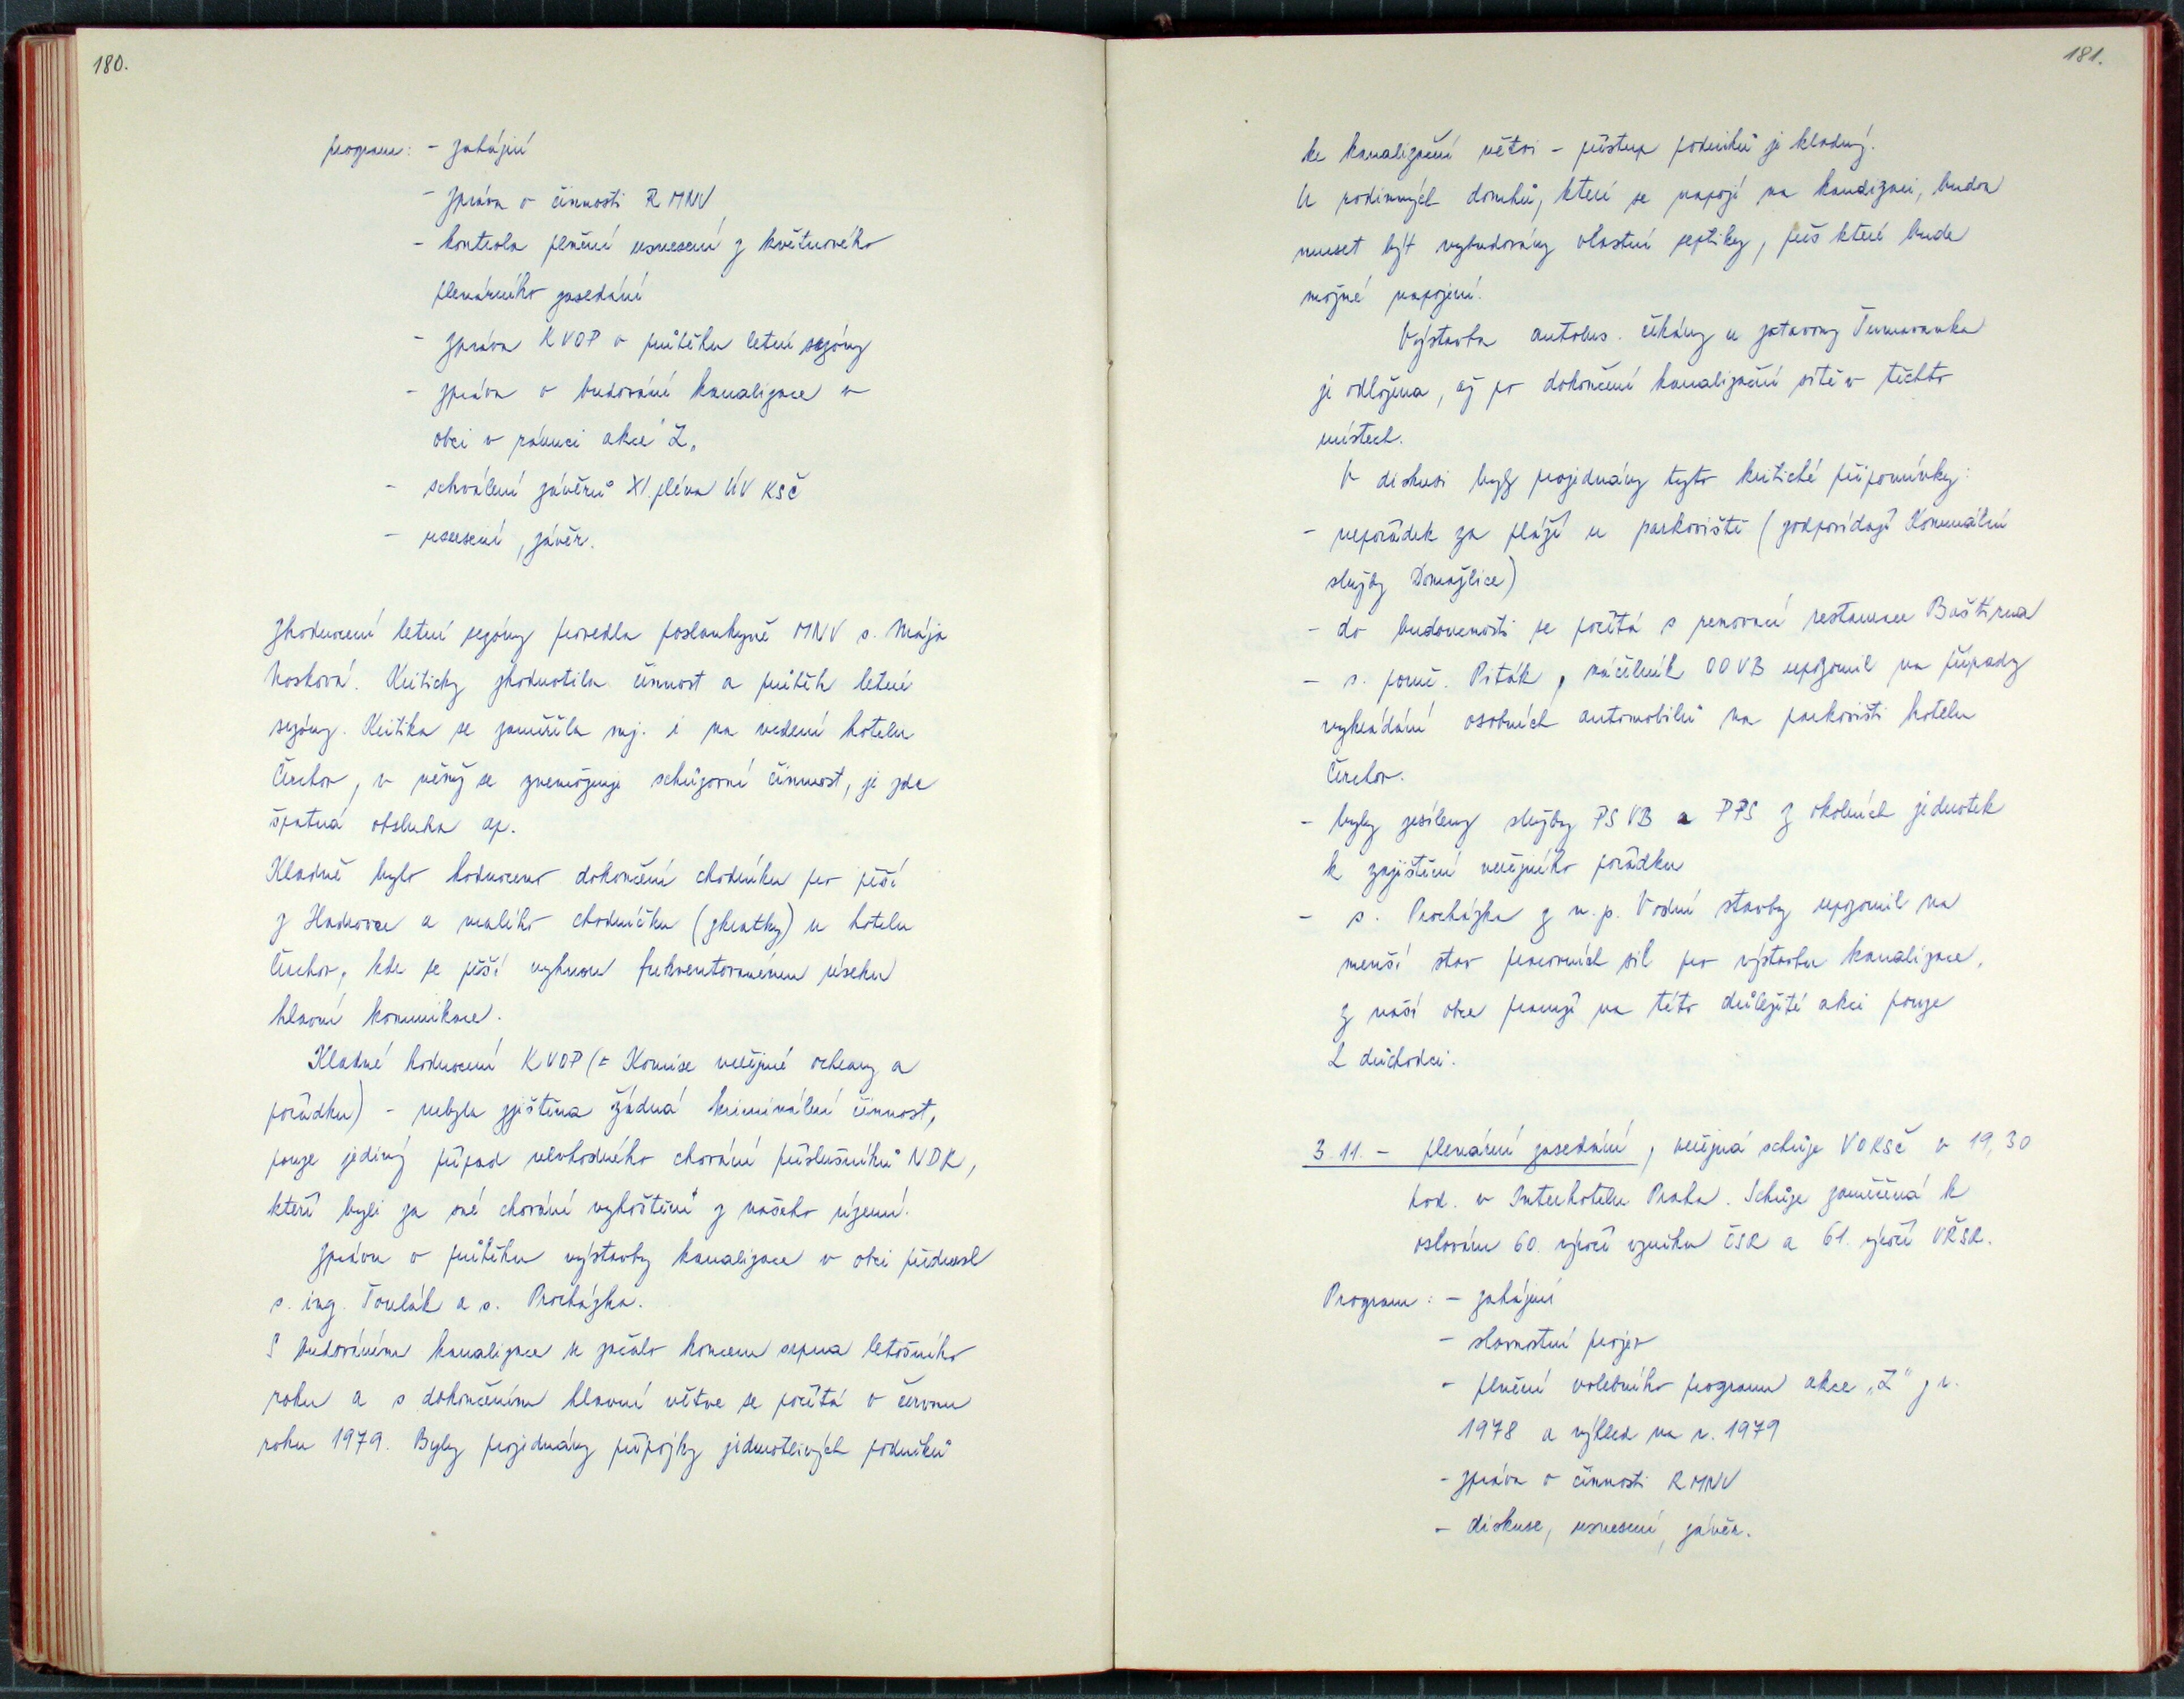 180.
program: - zahájení
- zpráva o činnosti RMNV
- kontrola plnění usnesení z květnového
plenárního zasedání
- zpráva KVOP o průběhu letní sezóny
- zpráva o budování kanalizace v
obci v rámci akce Z"
- schválení závěrů XI. pléna ÚV KSČ
- usnesení, závěr.
Zhodnocení letní sezóny provedla poslankyně MNV s. Mája
Nosková. Kriticky zhodnotila činnost a průběh letní
sezóny. Kritika se zaměřila mj. i na vedení hotelu
Čerchov, v němž se znemožňuje schůzovní činnost, je zde
špatná obsluha ap.
Kladně bylo hodnoceno dokončení chodníku pro pěší
z Hadrovce a malého chodníčku (zkratky) u hotelu
Čerchov, kde se pěší vyhnou frekventovanému úseku
hlavní komunikace.
Kladné hodnocení KVOP (= Komise veřejné ochrany a
pořádku) - nebyla zjištěna žádná kriminální činnost,
pouze jediný případ nevhodného chování příslušníků NDR,
kteří byli za své chování vyhoštěni z našeho území.
Zprávu o průběhu výstavby kanalizace v obci přednesl
s. ing. Toulák a s. Procházka.
S budováním kanalizace se začalo koncem srpna letošního
roku a s dokončením hlavní větve se počítá v červnu
roku 1979. Byly projednány přípojky jednotlivých podniků
181.
ke kanalizační větvi - přístup podniků je kladný.
U rodinných domků, které se napojí na kanalizaci, budou
muset být vybudovány vlastní septiky, přes které bude
možné napojení.
Výstavba autobus. čekárny u zotavovny Šumavanka
je odložena, až po dokončení kanalizační sítě v těchto
místech.
V diskusi byly projednány tyto kritické připomínky:
- nepořádek za pláží u parkoviště (zodpovídají Komunální
služby Domažlice)
- do budoucnosti se počítá s renovací restaurace Baštírna
- s. porč. Piták, náčelník OOVB upozornil na případy
vykrádání osobních automobilů na parkovišti hotelu
Čerchov.
- byly zesíleny služby PS VB a PPS z okolních jednotek
k zajištění veřejného pořádku
- s. Procházka z n. p. Vodní stavby upozornil na
menší stav pracovních sil pro výstavbu kanalizace,
z naší obce pracují na této důležité akci pouze
2 důchodci.
3. 11. - plenární zasedání, veřejná schůze VOKSČ v 19,30
hod. v Interhotelu Praha. Schůze zaměřená k
oslavám 60. výročí vzniku ČSR a 61. výročí VŘSR.
Program: - zahájení
- slavnostní projev
- plnění volebního programu akce „Z" z r.
1978 a výhled na r. 1979
- zpráva o činnosti RMNV
- diskuse, usnesení, závěr.